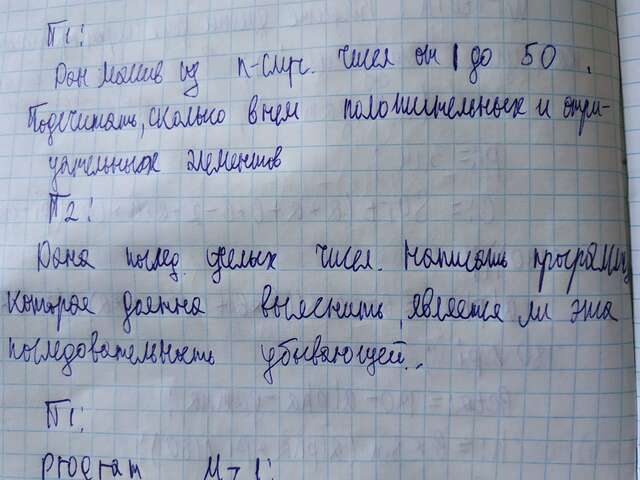 П1:
Дан массив из n-случ. чисел от 1 до 50.
Подсчитать, сколько в нем положительных и отри-
цательных элементов
П2:
Дана послед. целых чисел. Написать программу,
которая должна выяснить, является ли эта
последовательность убывающей..
П1:
program M-1;